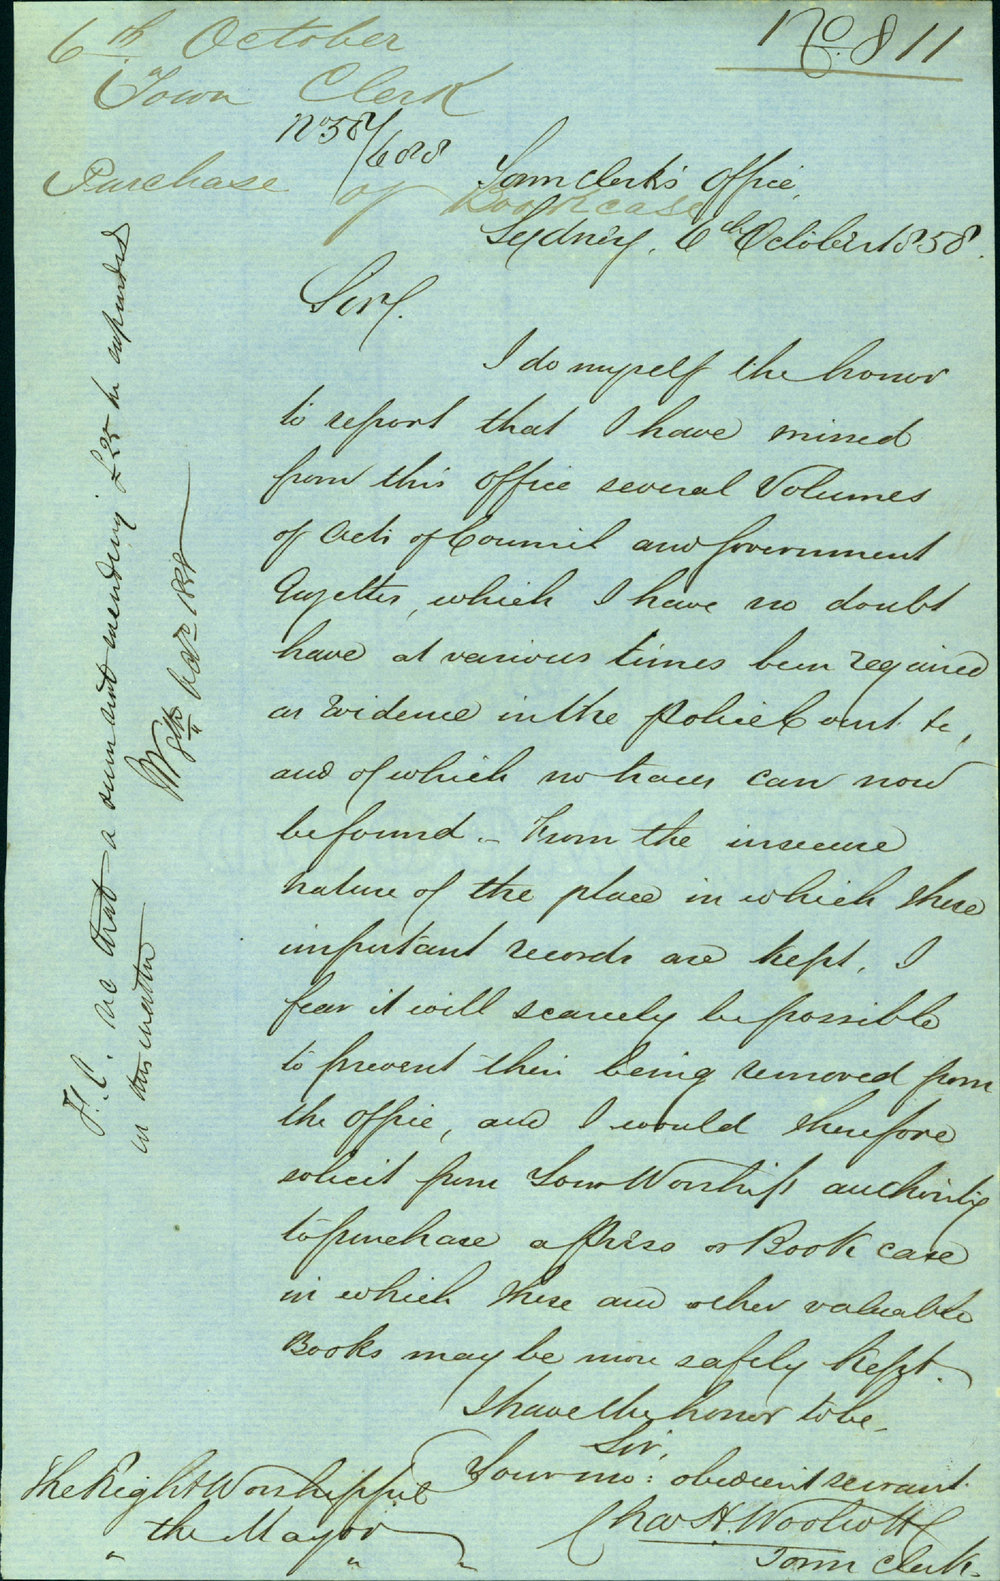 6th October
Town Clerk
No 811
No 58/688
Purchase of Bookcase
Town Clerk's Office,
Sydney, 6th October 1858.
Sir,
I do myself the honor
to report that I have missed
from this Office several Volumes
of Acts of Council and Government
Gazettes, which I have no doubt
have at various times been required
as evidence in the Police Court &c,
and of which no traces can now
be found. - From the insecure
nature of the place in which these
important records are kept, I
fear it will scarcely be possible
to prevent their being removed from
the Office, and I would therefore
solicit from Your Worship authority
to purchase a Press or Book case
in which these and other valuable
Books may be more safely kept.
I have the honor to be
Sir,
Your mo: obedient servant
Chas H. Woolcott
Town Clerk.
The Right Worshipful
the Mayor
" " "
F.C. rec that a sum not exceeding £25 be expended
in this matter
8th Oct 1858